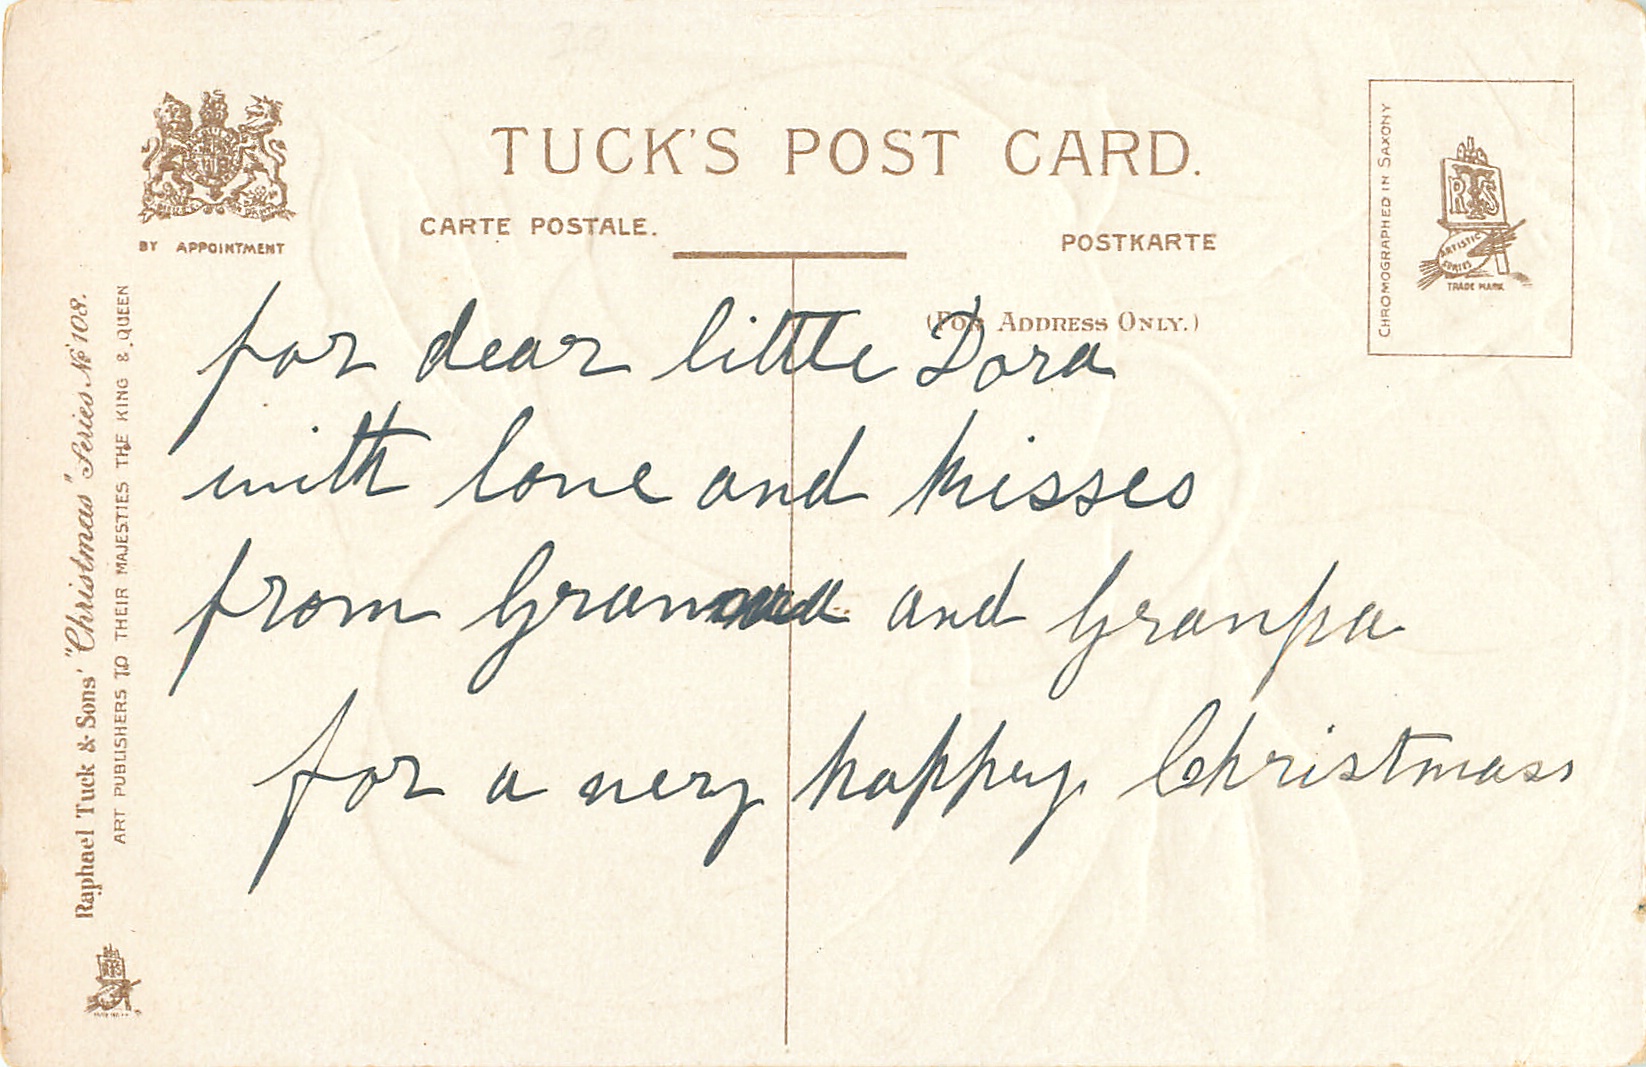 TUCK'S POST CARD.
CARTE POSTALE.
POSTKARTE
(FOR ADDRESS ONLY.)
BY APPOINTMENT
CHROMOGRAPHED IN SAXONY
RTS
ARTISTIC SERIES
TRADE MARK
for dear little Dora
with love and kisses
from and Granpa
for a very happy Christmass
Raphael Tuck & Sons' "Christmas" Series No 108.
ART PUBLISHERS TO THEIR MAJESTIES THE KING & QUEEN